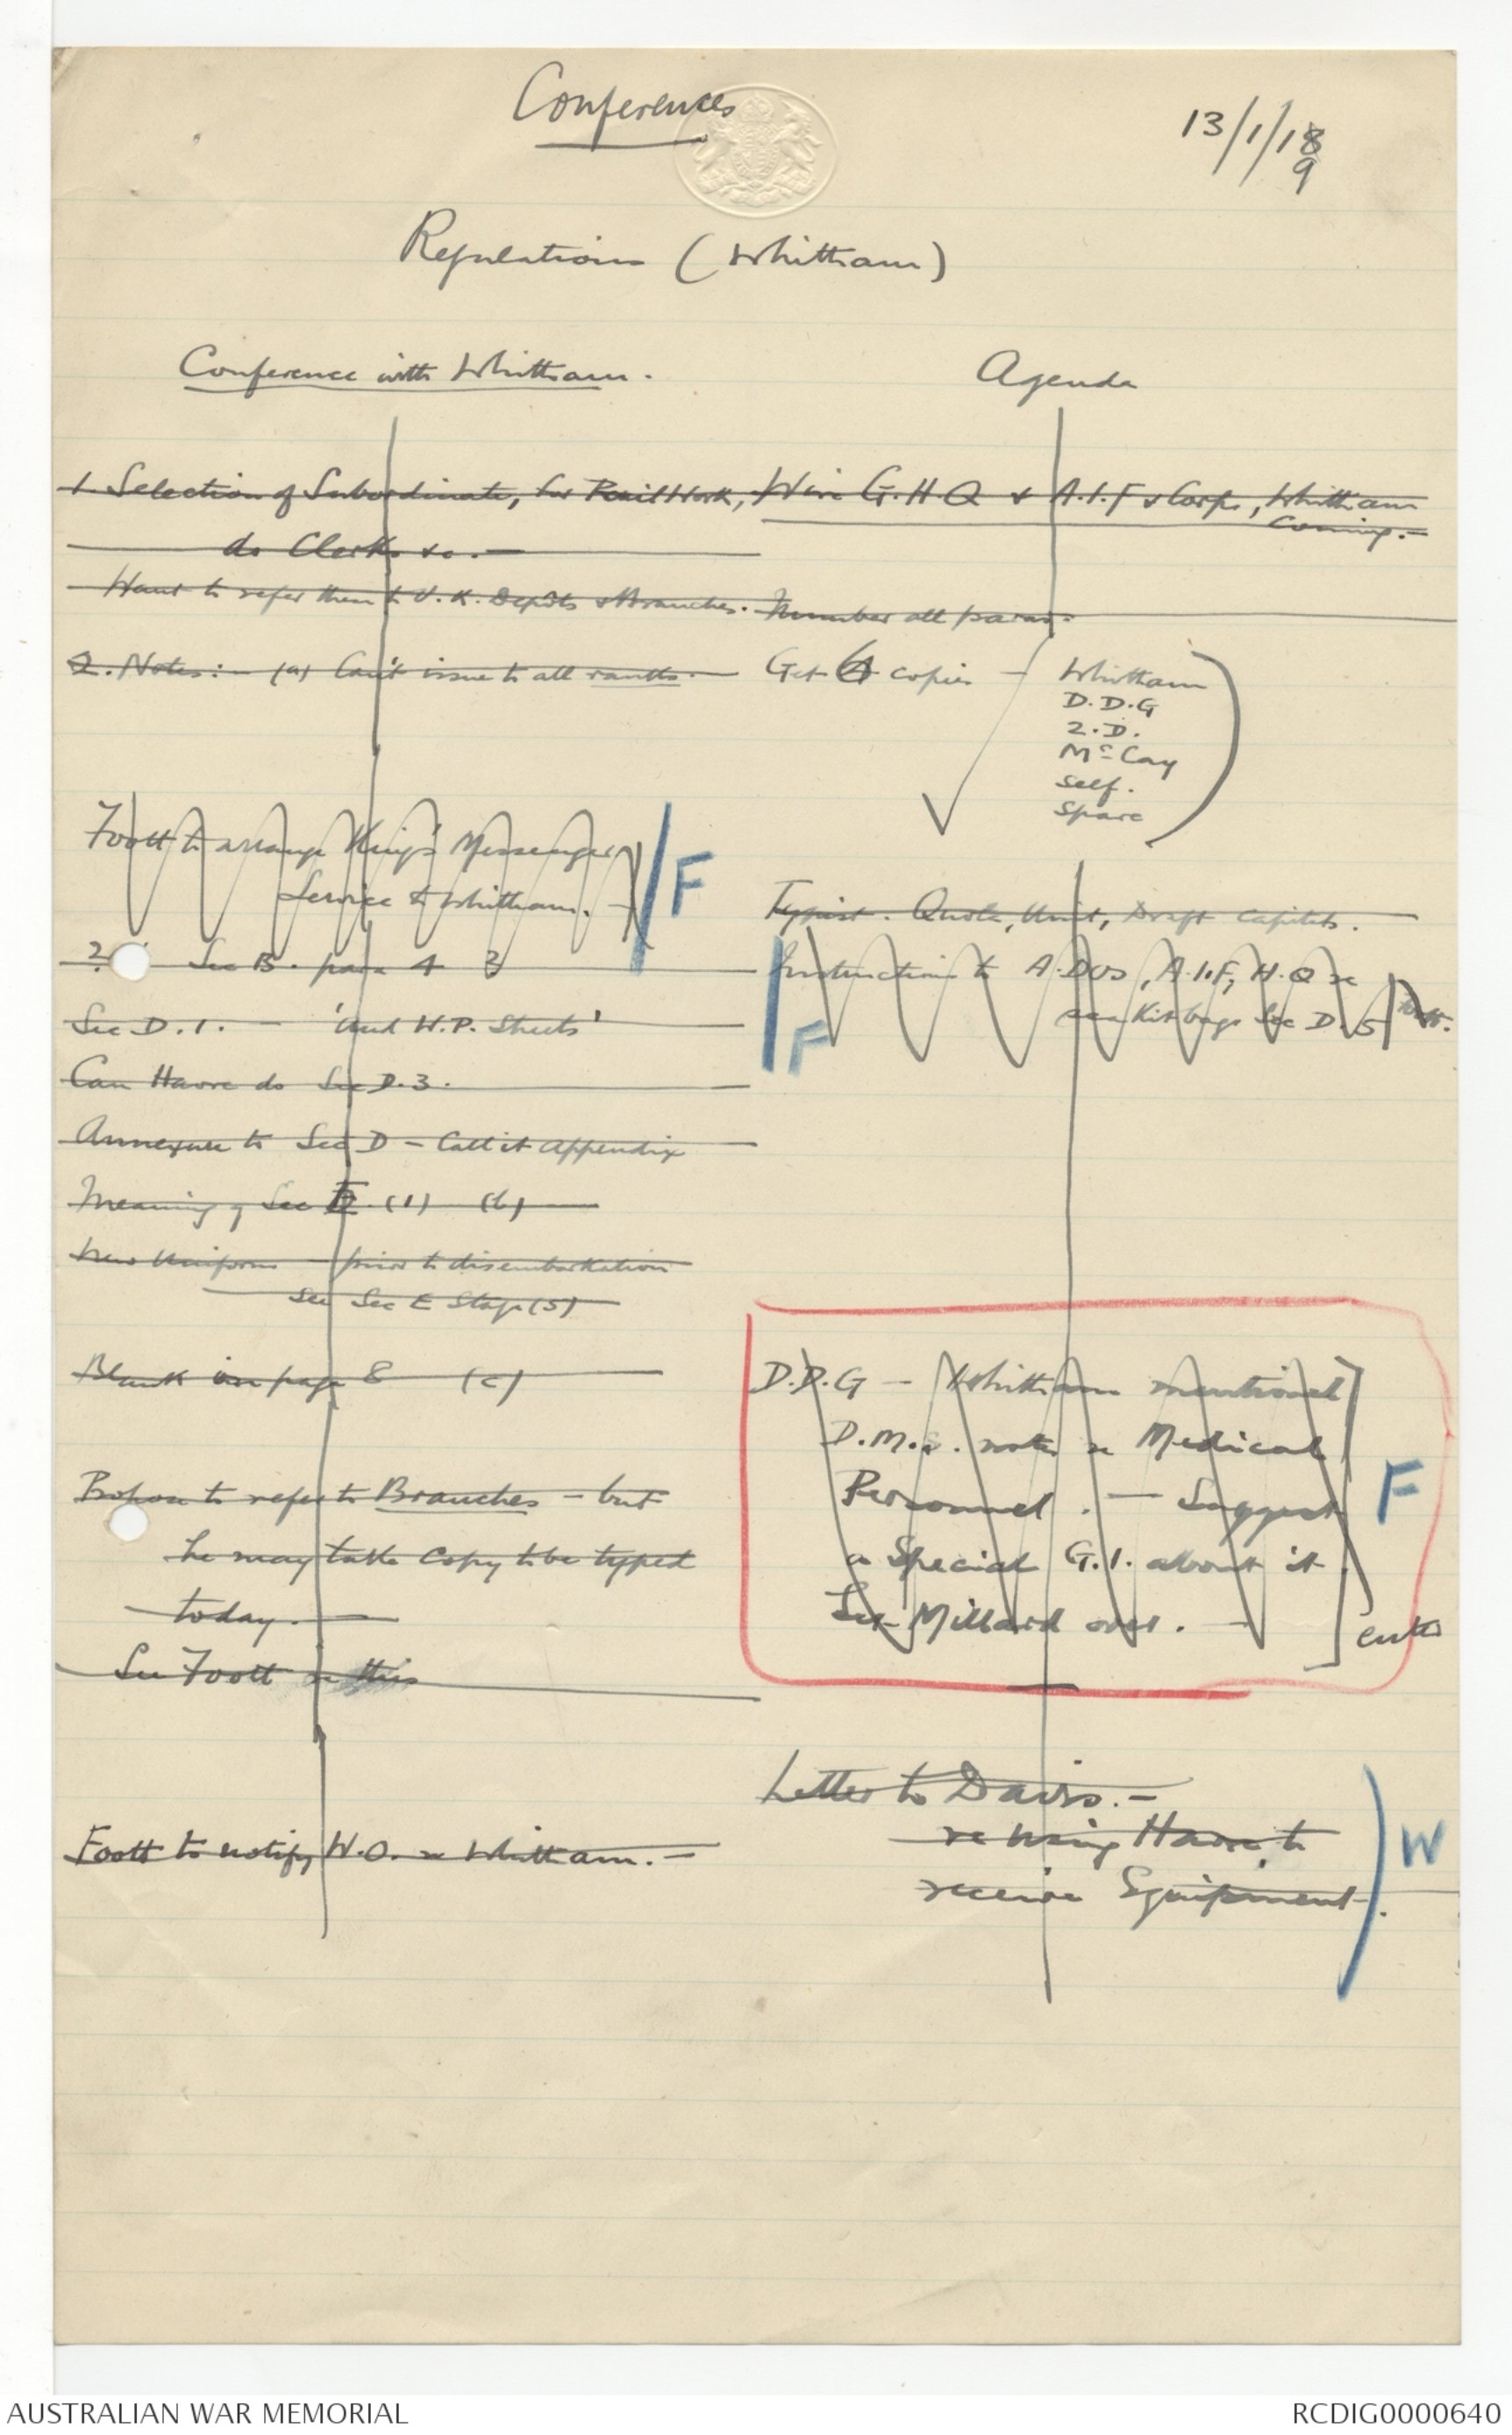 Conferences
13/1/18
9
Regulations (Whitham)
Conference with Whitham.
1. Selection of Subordinate, for Rail Work,
do Clerks &c. -
Want to refer them to U.K. Depôts & Branches.
2. Notes:- (a) Can't issue to all ranks. -
Foott to arrange King's Messenger
Service to Whitham. -
F
? Sec B. para 4
Sec D.1. - 'and H.P. Sheets'
Can Havre do Sec D.3.
Annexure to Sec D - Call it Appendix
Meaning of Sec (1) (b)
New Uniform - prior to disembarkation
see Sec E Stage (5)
Blank on page 8 (c)
Propose to refer to Branches - but
he may take copy to be typed
today. -
See Foott re this
Foott to notify W.O. re Whitham. -
Agenda
Wire G.H.Q & A.I.F & Corps, Whitham
coming. -
Number all paras. -
Get 6 copies - Whitham
D.D.G
2.D.
McCay
self.
Spare
Typist. Quote, Unit, Draft Capitals.
Instruction to A.DOS, A.I.F, H.Q re
Kitbags Sec D.5
F
D.D.G - Whitham mentioned
D.M.S. notes re Medical
Personnel. - Suggest
a Special G.I. about it
See Millard over. -
F
Letter to Davis. -
re using Havre to
receive Equipment.
W
AUSTRALIAN WAR MEMORIAL
RCDIG0000640